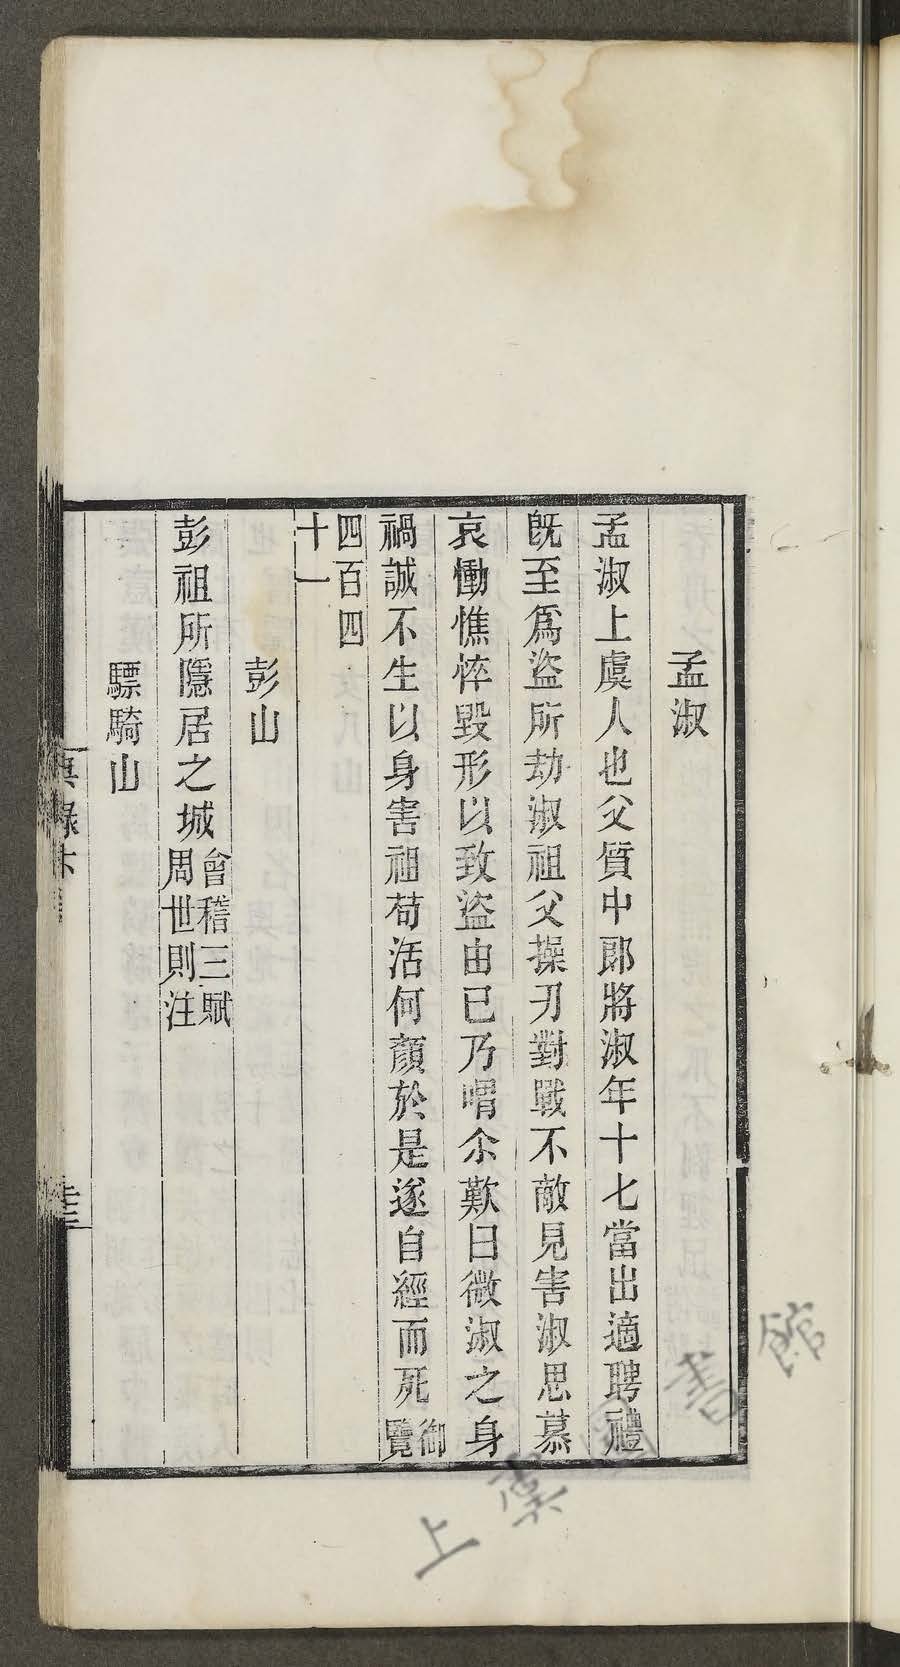 孟淑
孟淑上虞人也父質中郎將淑年十七當出適聘禮
既至爲盜所劫淑祖父操刃對戰不敵見害淑思慕
哀慟憔悴毀形以致盜由已乃喟尒歎曰微淑之身
禍誠不生以身害祖苟活何顏於是遂自經而死御
覽
四百四
十一
彭山
彭祖所隱居之城會稽三賦
周世則注
驃騎山
上虞圖書館